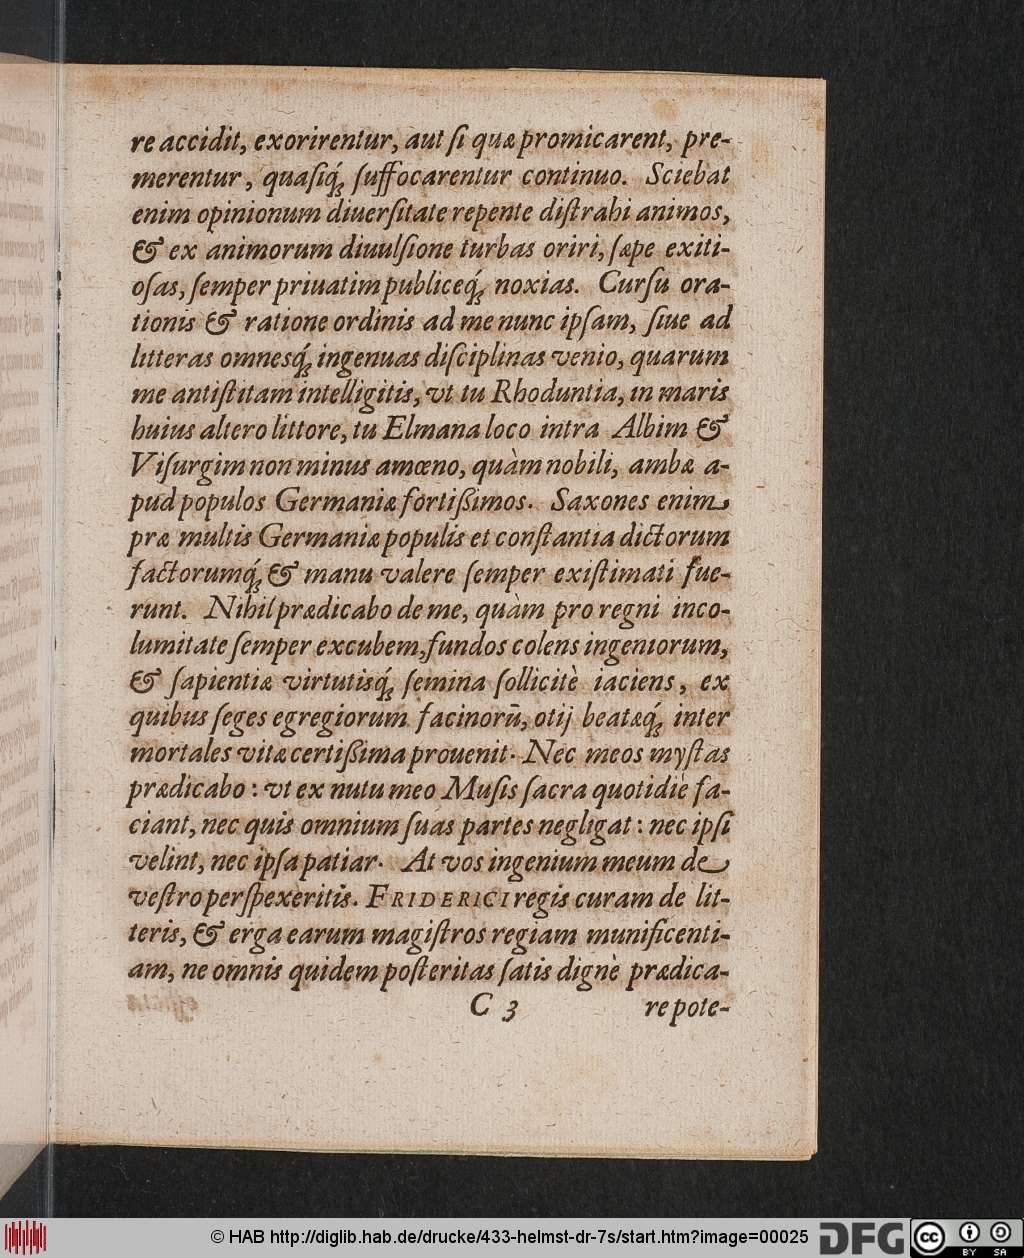 re accidit, exorirentur, aut ſi quæ promicarent, pre-
merentur, quaſiq́; ſuffocarentur continuo. Sciebat
enim opinionum diuerſitate repente diſtrahi animos,
& ex animorum diuulſione turbas oriri, ſæpe exiti-
oſas, ſemper priuatim publiceq́; noxias. Curſu ora-
tionis & ratione ordinis ad me nunc ipſam, ſiue ad
litteras omnesq́; ingenuas diſciplinas venio, quarum
me antiſtitam intelligitis, vt tu Rhoduntia, in maris
huius altero littore, tu Elmana loco intra Albim &
Viſurgim non minus amœno, quàm nobili, ambæ a-
pud populos Germaniæ fortißimos. Saxones enim
præ multis Germaniæ populis et conſtantia dictorum
factorumq́; & manu valere ſemper exiſtimati fue-
runt. Nihil prædicabo de me, quàm pro regni inco-
lumitate ſemper excubem, fundos colens ingeniorum,
& ſapientiæ virtutisq́; ſemina ſollicitè iaciens, ex
quibus ſeges egregiorum facinorū, otij beatæq́; inter
mortales vitæ certißima prouenit. Nec meos myſtas
prædicabo: vt ex nutu meo Muſis ſacra quotidie fa-
ciant, nec quis omnium ſuas partes negligat: nec ipſi
velint, nec ipſa patiar. At vos ingenium meum de
veſtro perſpexeritis. FRIDERICI regis curam de lit-
teris, & erga earum magiſtros regiam munificenti-
am, ne omnis quidem poſteritas ſatis dignè prædica-
C 3 re pote-
© HAB http://diglib.hab.de/drucke/433-helmst-dr-7s/start.htm?image=00025 DFG cc BY SA